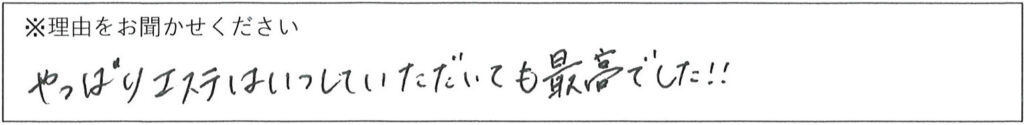 ※理由をお聞かせください
やっぱりエステはいつしていただいても最高でした!!